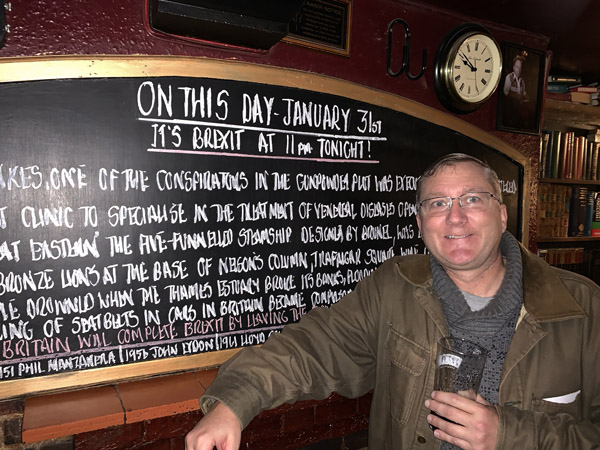 ON THIS DAY - JANUARY 31ST
IT'S BREXIT AT 11PM TONIGHT!
ONE OF THE CONSPIRATORS IN THE GUNPOWDER PLOT WAS
CLINIC TO SPECIALISE IN THE TREATMENT OF VENEREAL DISEASES
EASTERN' THE FIVE-FUNNELLED STEAMSHIP DESIGNED BY BRUNEL, WAS
BRONZE LIONS AT THE BASE OF NELSON'S COLUMN, TRAFALGAR SQUARE
DROWNED WHEN THE THAMES ESTUARY BROKE ITS BANKS,
OF SEATBELTS IN CARS IN BRITAIN BECAME
BRITAIN WILL COMPLETE BREXIT BY LEAVING THE
PHIL MANZANERA | 1956 JOHN LYDON |